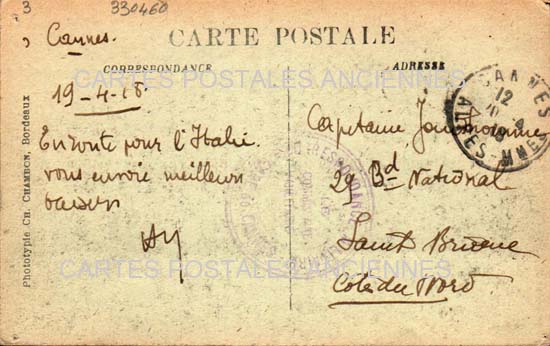 3
330460
Cannes.
CARTE POSTALE
CORRESPONDANCE
ADRESSE
CARTES POSTALES ANCIENNES
19-4-18.
En route pour l'Italie.
vous envoie meilleurs
baisers
Capitaine
29 Bd National
Saint Brieuc
Côtes du Nord
CANNES
12
ALPES-MMES
CORRESPONDANCE
CARTES POSTALES ANCIENNES
Phototypie CH. CHAMBON, Bordeaux